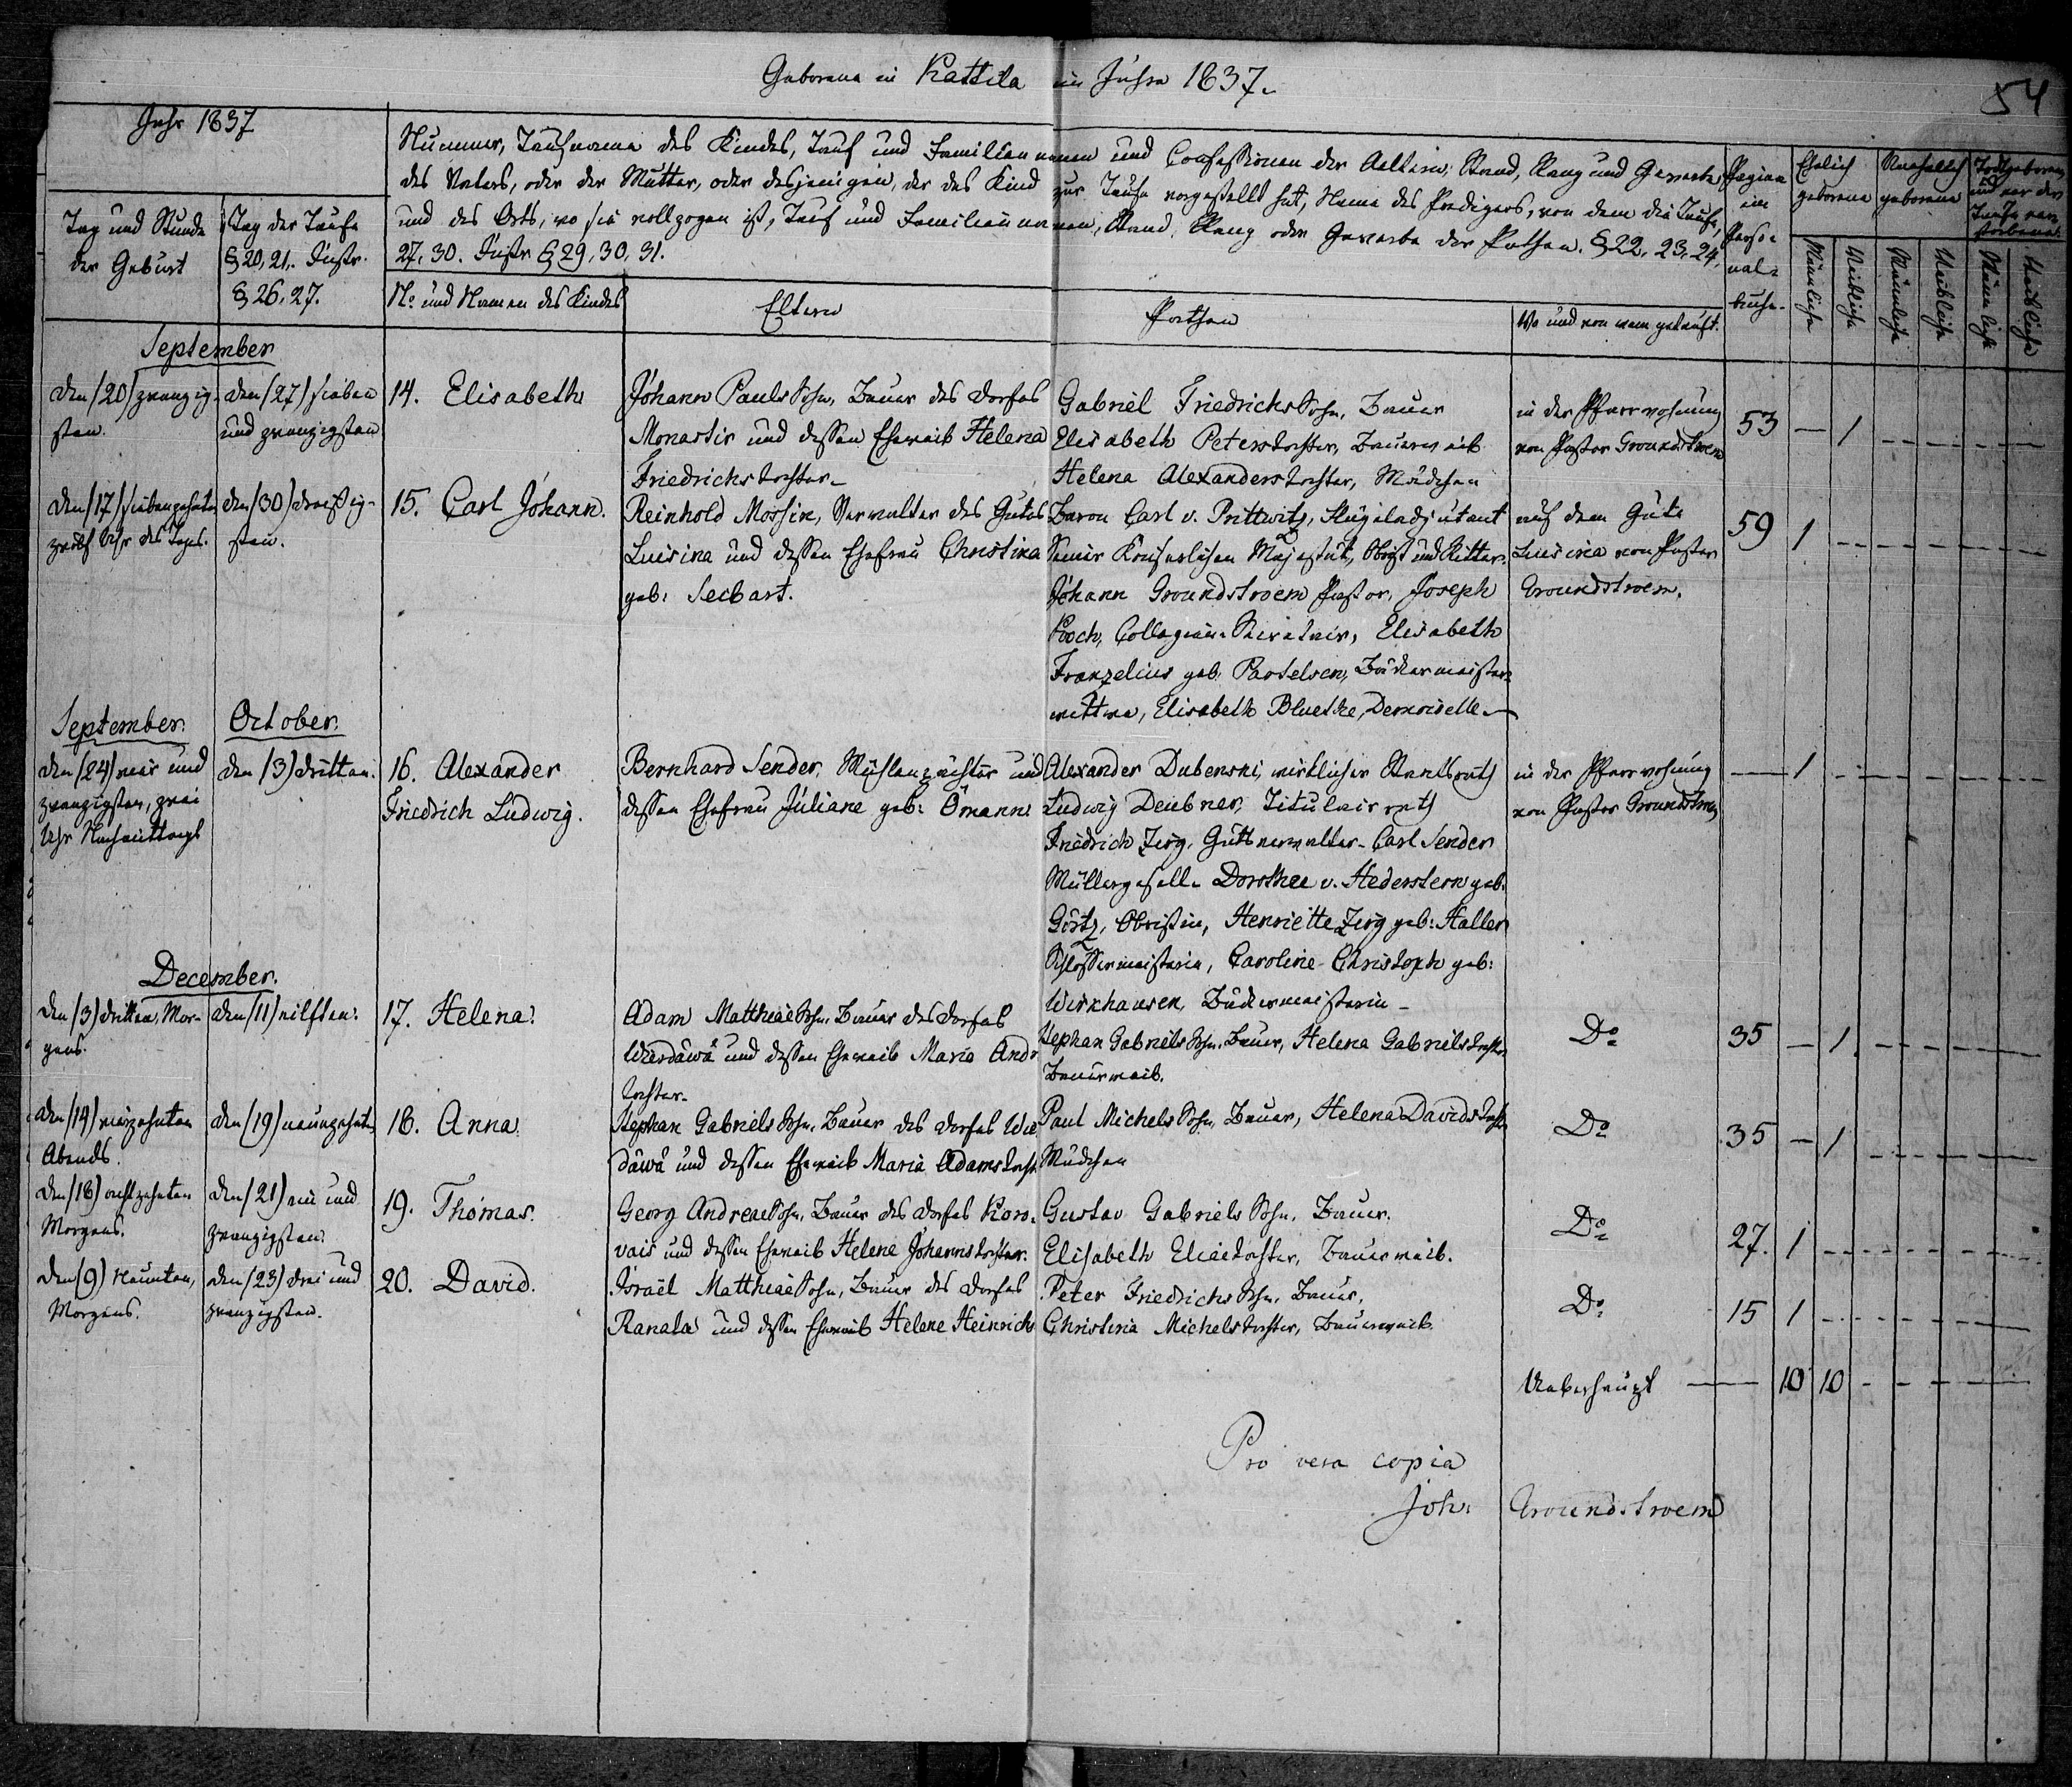 Geborene in Kattila im Jahre 1837.
54
Jahr 1837
Nummer, Taufname des Kindes, Tauf und Familiennamen und Confessionen der Aeltern, Stand, Rang und Gewerbe
des Vaters, oder der Mutter, oder desjenigen, der das Kind zur Taufe vorgestellt hat, Name des Predigers, von dem die Taufe,
und des Orts, wo sie vollzogen ist, Tauf und Familiennamen, Stand, Rang oder Gewerbe der Pathen. § 22, 23, 24,
27, 30. Instr § 29, 30, 31.
Tag und Stunde
der Geburt
Tag der Taufe
§ 20, 21. Instr.
§ 26, 27.
No und Namen des Kindes
Eltern
Pathen
Wo und von wem getauft.
Pagina
im
Perso-
nal-
buche.
Ehelich
geborene
Unehelich
geborene
Todtgeborene
und vor der
Taufe ver-
storbene.
Männliche
Weibliche
Männliche
Weibliche
Männliche
Weibliche
September
den (20) zwanzig-
sten.
den (27) sieben
und zwanzigsten
14. Elisabeth
Johann Pauls Sohn, Bauer des Dorfes
Monastir und dessen Eheweib Helena
Friedrichstochter.
Gabriel Friedrichs Sohn, Bauer
Elisabeth Peterstochter, Bauerweib
Helena Alexanderstochter, Mädchen
in der Pfarrwohnung
von Pastor Groundstroem
53 — 1 - - - -
den (17) siebenzehnten
zwölf Uhr des Tages.
den (30) dreißig-
sten.
15. Carl Johann.
Reinhold Mossin, Verwalter des Gutes
Luisina und dessen Ehefrau Christina
geb: Seebart.
Baron Carl v. Prittwitz, Flügeladjutant
Seiner Kaiserlichen Majestät, Obrist und Ritter.
Johann Groundstroem Pastor, Joseph
Koch, Collegien-Secretair, Elisabeth
Franzelius geb. Paselsen, Bäckermeister-
wittwe, Elisabeth Bluethe, Demoiselle
auf dem Gute
Luisina von Pastor
Groundstroem.
59 1 - - - - -
September.
October.
den (24) vier und
zwanzigsten, zwei
Uhr Nachmittags
den (3) dritten.
16. Alexander
Friedrich Ludwig.
Bernhard Sender, Mühlenpächter und
dessen Ehefrau Juliane geb: Ömann.
Alexander Dubenski, wirklicher Staatsrath
Ludwig Deubner, Titulairrath
Friedrich Zerg, Gutsverwalter. Carl Sender
Müllergesell. Dorothee v. Hederstern geb.
Görtz, Obristin, Henriette Zerg geb: Haller
Schlossermeisterin, Caroline Christoph geb:
Wirkhausen, Bäckermeisterin
in der Pfarrwohnung
von Pastor Groundstroem
— 1 - - - - -
December.
den (3) dritten, Mor-
gens.
den (11) eilften.
17. Helena.
Adam Matthiae Sohn, Bauer des Dorfes
Wierdäwä und dessen Eheweib Maria Andr
tochter.
Stephan Gabriels Sohn, Bauer, Helena Gabrielstochter
Bauerweib.
Do
35 — 1 - - - -
den (14) vierzehnten
Abends.
den (19) neunzehnten
18. Anna.
Stephan Gabriels Sohn, Bauer des Dorfes Wie
däwä und dessen Eheweib Maria Adamstocht.
Paul Michels Sohn, Bauer, Helena Davidstochter
Mädchen
Do
35 — 1 - - - -
den (18) achtzehnten
Morgens.
den (21) ein und
zwanzigsten.
19. Thomas.
Georg Andreae Sohn, Bauer des Dorfes Koro-
vais und dessen Eheweib Helene Johannstochter.
Gustav Gabriels Sohn, Bauer.
Elisabeth Eliaetochter, Bauerweib.
Do
27. 1 - - - - -
den (9) Neunten,
Morgens.
den (23) drei und
zwanzigsten.
20. David.
Israël Matthiae Sohn, Bauer des Dorfes
Ranala und dessen Eheweib Helene Heinrichs
Peter Friedrichs Sohn, Bauer,
Christina Michelstochter, Bauerweib.
Do
15 1 - - - - -
Ueberhaupt — 10 10 - - - -
Pro vera copia
Joh: Groundstroem